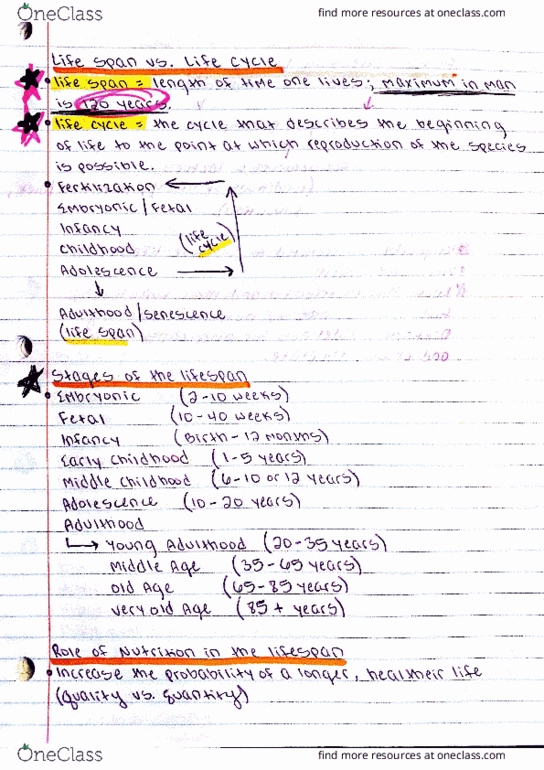 OneClass
find more resources at oneclass.com
Life span vs. Life cycle
life span = length of time one lives; maximum in man
is 120 years.
life cycle = the cycle that describes the beginning
of life to the point at which reproduction of the species
is possible.
Fertilization
Embryonic / Fetal
Infancy
(life
childhood
cycle)
Adolescence
Adulthood / senescence
(life span)
Stages of the lifespan
Embryonic (2-10 weeks)
Fetal (10-40 weeks)
Infancy (Birth-12 months)
Early Childhood (1-5 years)
Middle Childhood (6-10 or 12 years)
Adolescence (10-20 years)
Adulthood
Young Adulthood (20-35 years)
Middle Age (35-65 years)
Old Age (65-85 years)
Very old Age (85+ years)
Role of Nutrition in the lifespan
Increase the probability of a longer, healtheir life
(quality vs. quantity)
OneClass
find more resources at oneclass.com